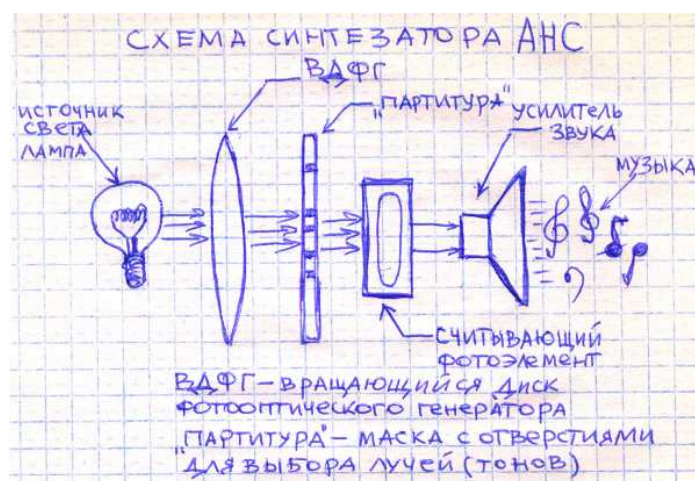 СХЕМА СИНТЕЗАТОРА АНС
ВДФГ
ИСТОЧНИК
СВЕТА
ЛАМПА
"ПАРТИТУРА"
УСИЛИТЕЛЬ
ЗВУКА
МУЗЫКА
СЧИТЫВАЮЩИЙ
ФОТОЭЛЕМЕНТ
ВДФГ-ВРАЩАЮЩИЙСЯ ДИСК
ФОТООПТИЧЕСКОГО ГЕНЕРАТОРА
"ПАРТИТУРА"-МАСКА С ОТВЕРСТИЯМИ
ДЛЯ ВЫБОРА ЛУЧЕЙ (ТОНОВ)